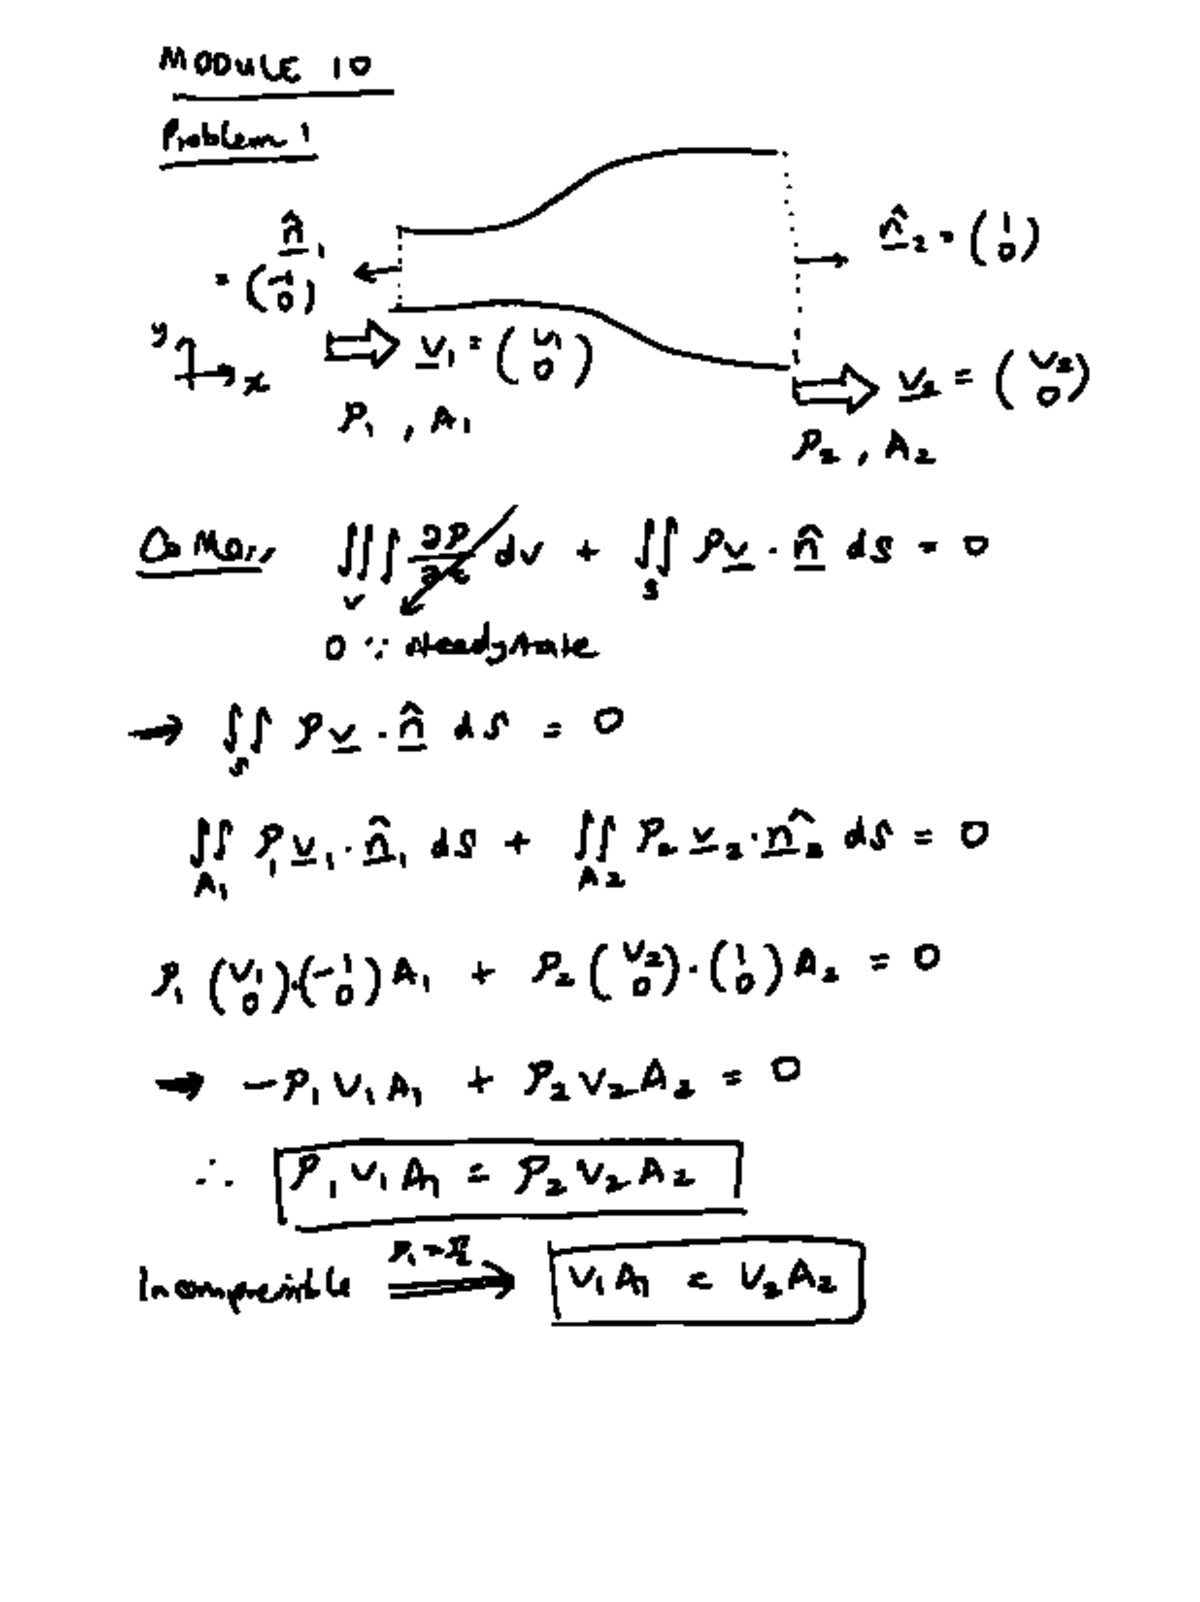 MODULE 10
Problem 1
n̂₁ = (-1 0)
n̂₂ = (1 0)
y x
v₁ = (v₁ 0)
v₂ = (v₂ 0)
ρ₁, A₁
ρ₂, A₂
CoMass, ∭_V ∂ρ/∂t dV + ∬_S ρv · n̂ dS = 0
0 ∵ steady state
→ ∬_S ρv · n̂ dS = 0
∬_A₁ ρ₁v₁ · n̂₁ dS + ∬_A₂ ρ₂v₂ · n̂₂ dS = 0
ρ₁(v₁ 0)·(-1 0)A₁ + ρ₂(v₂ 0)·(1 0)A₂ = 0
→ -ρ₁v₁A₁ + ρ₂v₂A₂ = 0
∴ ρ₁v₁A₁ = ρ₂v₂A₂
Incompressible ρ₁=ρ₂ ⟹ v₁A₁ = v₂A₂